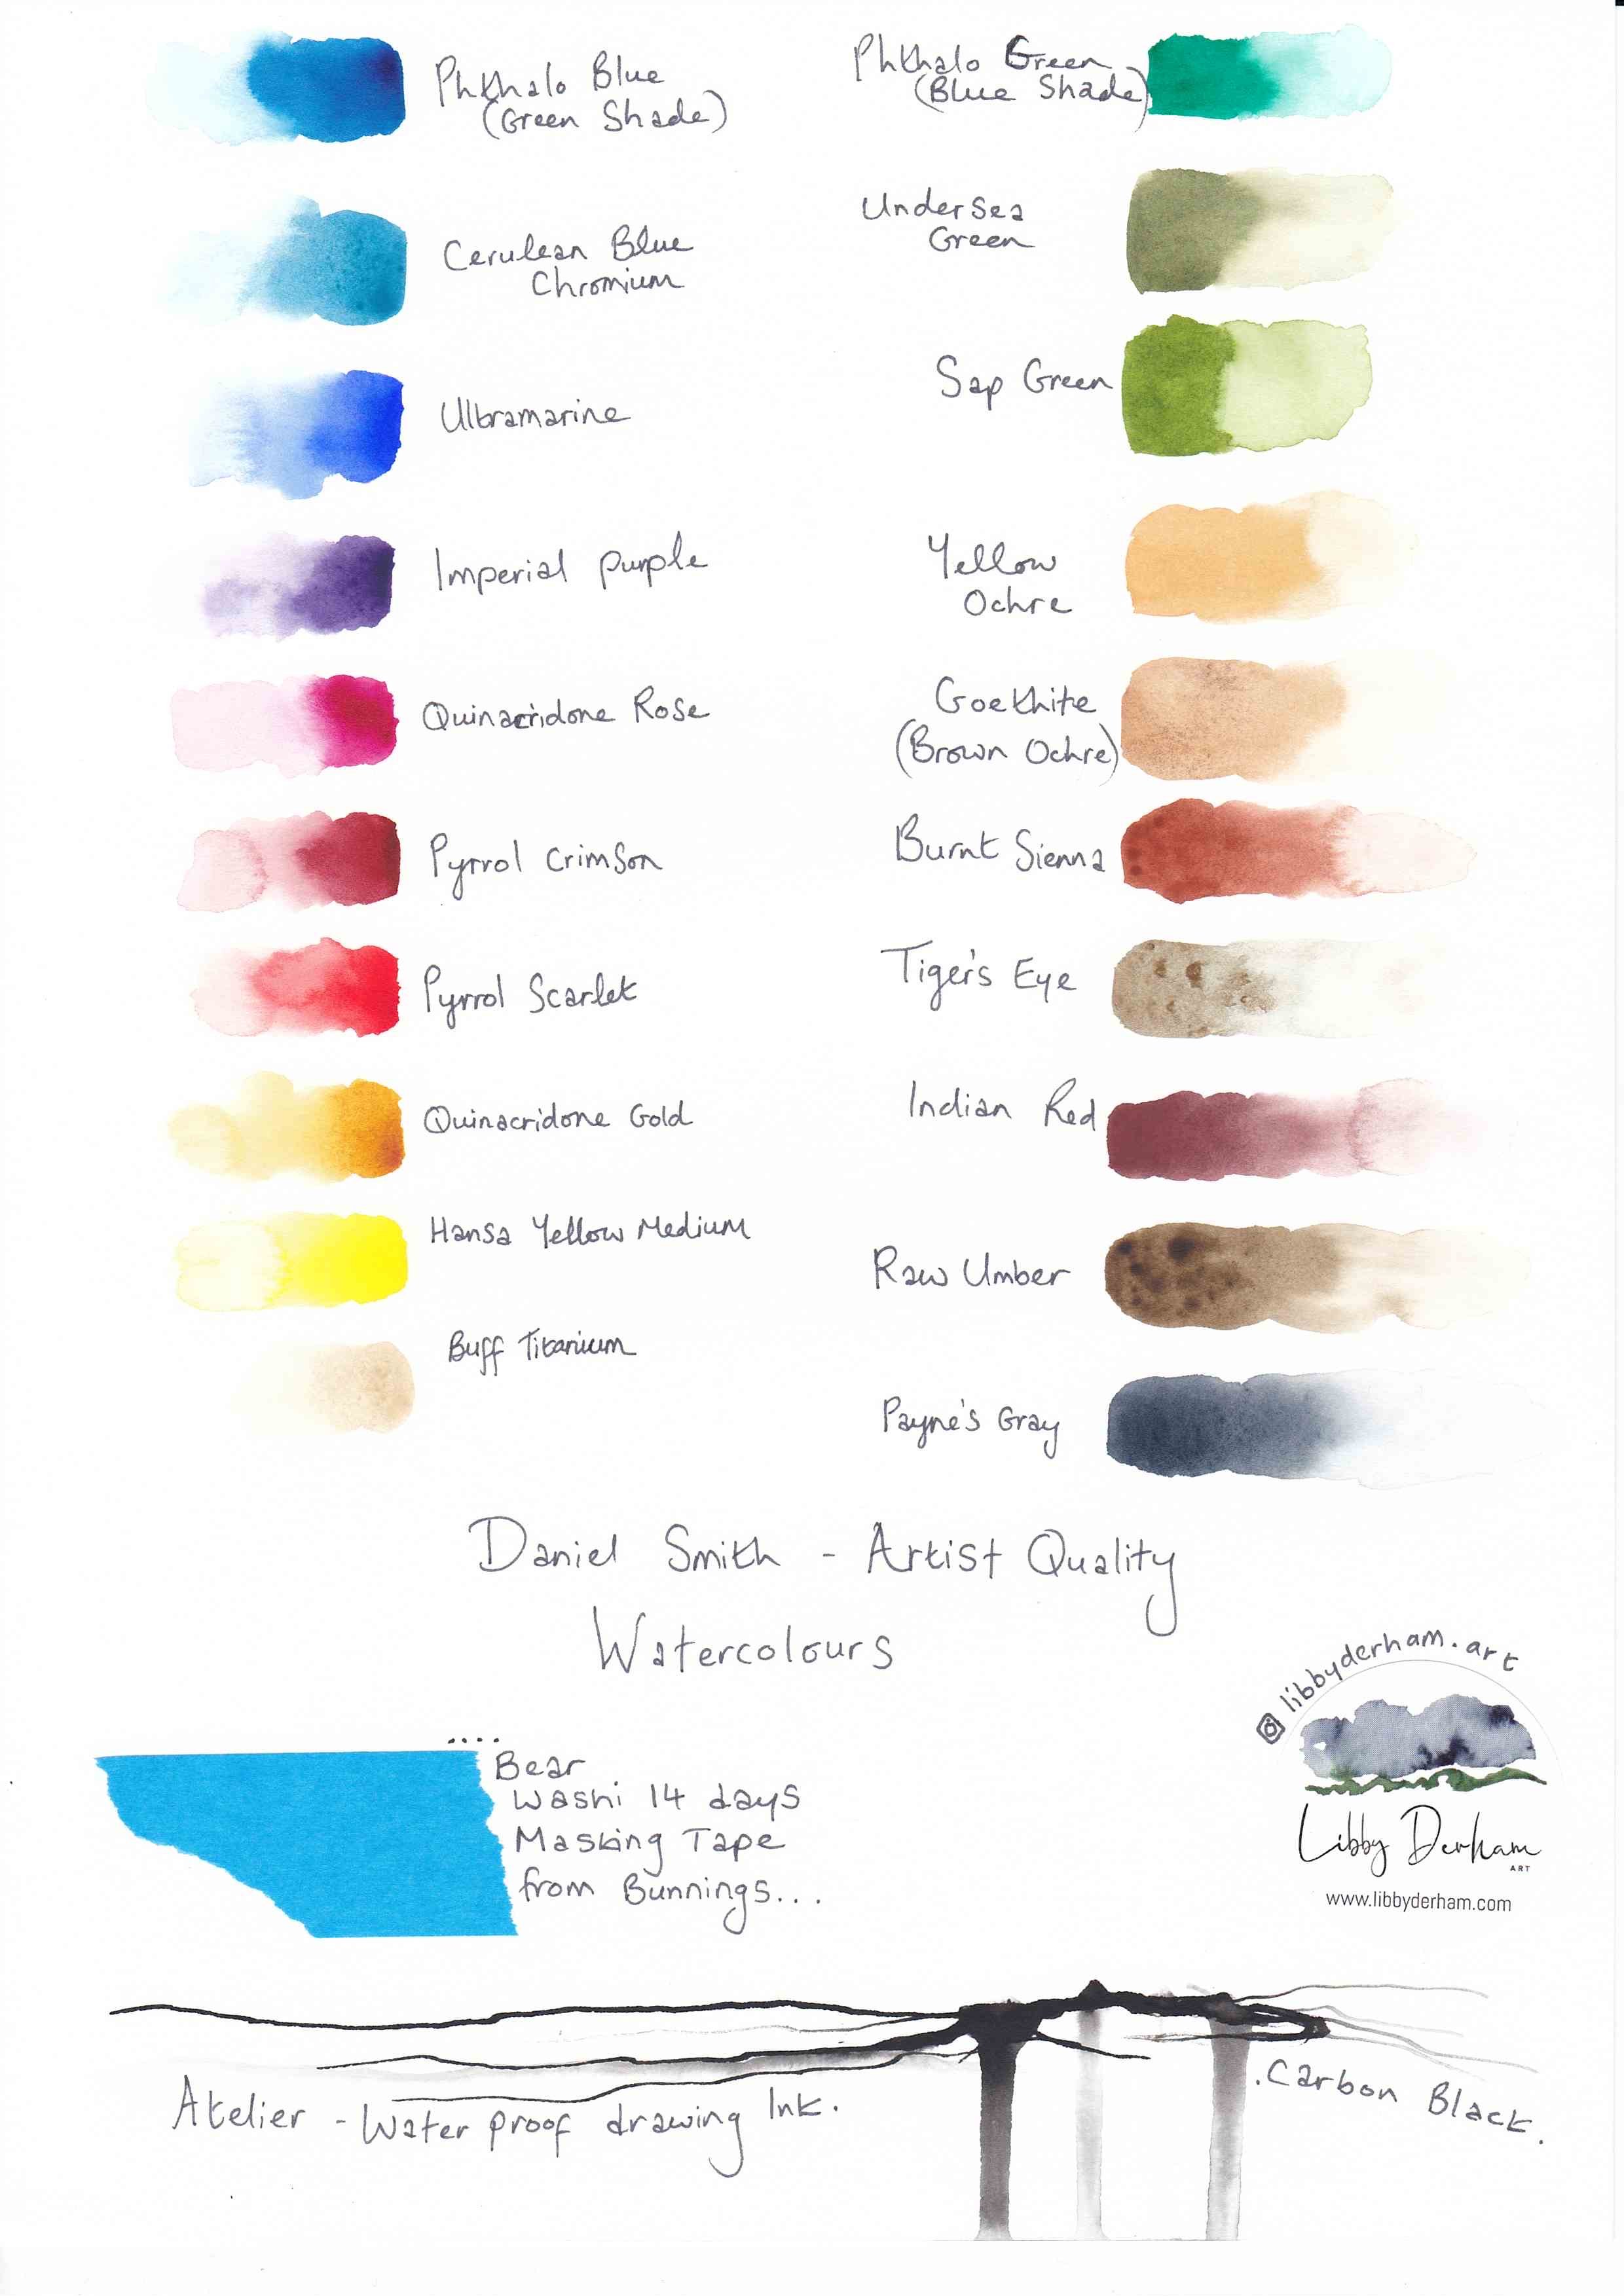 Phthalo Blue
(Green Shade)
Cerulean Blue
Chromium
Ultramarine
Imperial purple
Quinacridone Rose
Pyrrol Crimson
Pyrrol Scarlet
Quinacridone Gold
Hansa Yellow Medium
Buff Titanium
Phthalo Green
(Blue Shade)
Undersea
Green
Sap Green
Yellow
Ochre
Goethite
(Brown Ochre)
Burnt Sienna
Tiger's Eye
Indian Red
Raw Umber
Payne's Gray
Daniel Smith - Artist Quality
Watercolours
....
Bear
Washi 14 days
Masking Tape
from Bunnings...
libbyderham.art
Libby Derham
ART
www.libbyderham.com
Atelier - Water proof drawing Ink.
.Carbon Black.